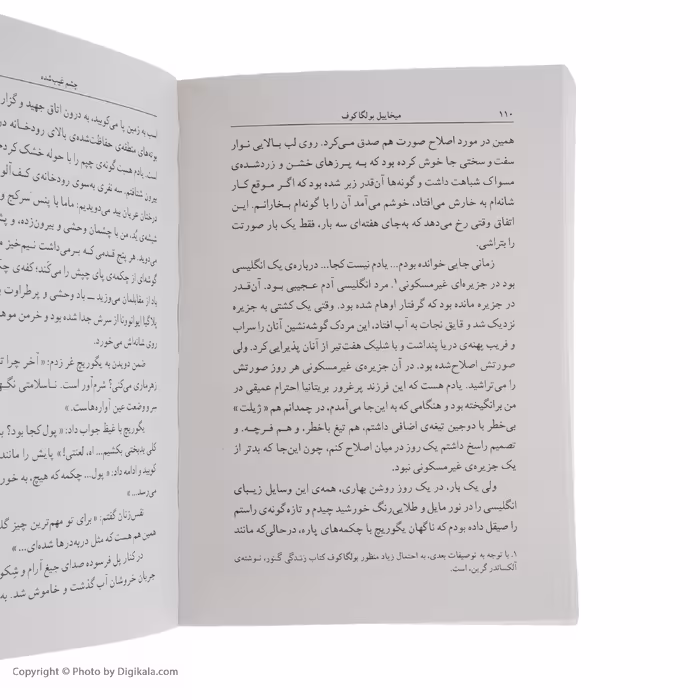 ۱۱۰
میخاییل بولگاکوف
همین در مورد اصلاح صورت هم صدق می‌کرد. روی لب بالایی نوار
سفت و سختی جا خوش کرده بود که به پرزهای خشن و زردشده‌ی
مسواک شباهت داشت و گونه‌ها آن‌قدر زبر شده بود که اگر موقع کار
شانه‌ام به خارش می‌افتاد، خوشم می‌آمد آن را با گونه‌ام بخارانم. این
اتفاق وقتی رخ می‌دهد که به‌جای هفته‌ای سه بار، فقط یک بار صورتت
را بتراشی.
زمانی جایی خوانده بودم... یادم نیست کجا... درباره‌ی یک انگلیسی
بود در جزیره‌ای غیرمسکونی ۱. مرد انگلیسی آدم عجیبی بود. آن‌قدر
در جزیره مانده بود که گرفتار اوهام شده بود. وقتی یک کشتی به جزیره
نزدیک شد و قایق نجات به آب افتاد، این مردک گوشه‌نشین آنان را سراب
و فریب پهنه‌ی دریا پنداشت و با شلیک هفت‌تیر از آنان پذیرایی کرد. ولی
صورتش اصلاح‌شده بود. در آن جزیره‌ی غیرمسکونی هر روز صورتش
را می‌تراشید. یادم هست که این فرزند پرغرور بریتانیا احترام عمیقی در
من برانگیخته بود و هنگامی که به این‌جا می‌آمدم، در چمدانم هم « ژیلت »
بی‌خطر با دوجین تیغه‌ی اضافی داشتم، هم تیغ باخطر، و هم فرچه. و
تصمیم راسخ داشتم یک روز در میان اصلاح کنم، چون این‌جا که بدتر از
یک جزیره‌ی غیرمسکونی نبود.
ولی یک بار، در یک روز روشن بهاری، همه‌ی این وسایل زیبای
انگلیسی را در نور مایل و طلایی‌رنگ خورشید چیدم و تازه گونه‌ی راستم
را صیقل داده بودم که ناگهان یگوریچ با چکمه‌های پاره، درحالی‌که مانند
۱. با توجه به توصیفات بعدی، به احتمال زیاد منظور بولگاکوف کتاب زندگی گنور، نوشته‌ی
آلکساندر گرین، است.
چشم غیب‌شده
اسب به زمین پا می‌کوبید، به درون اتاق جهید و گزار
بوته‌های منطقه‌ی حفاظت‌شده‌ی بالای رودخانه در
است. یادم هست گونه‌ی چپم را با حوله خشک کردم
بیرون شتافتم. سه نفری به‌سوی رودخانه‌ی کف‌آلو
درختان عریان بید می‌دویدیم: ماما با پنس سرکج و
شیشه‌ی ید، من با چشمان وحشی و بیرون‌زده، و پشت
می‌دوید. هر پنج قدمی که برمی‌داشت نیم‌خیز
گوشه‌ای از چکمه‌ی پای چپش را می‌کند؛ کفه‌ی
باد از مقابلمان می‌وزید ــ باد وحشی و پرطراوت
پلاگیا ایوانوونا از سرش جدا شده بود و خرمن
روی شانه‌اش می‌خورد.
ضمن دویدن به یگوریچ غر زدم: « آخر چرا
زهرماری می‌کنی؟ شرم‌آور است. ناسلامتی
سر و وضعت عین آواره‌هاست. »
یگوریچ با غیظ جواب داد: « پول کجا بود؟
کلی بدبختی بکشیم... اه، لعنتی! » پایش را مانند
کوبید و ادامه داد: « پول... چکمه که هیچ، به خور
می‌رسد... »
نفس‌زنان گفتم: « برای تو مهم‌ترین چیز
همین هم هست که مثل دربه‌درها شده‌ای... »
در کنار پل فرسوده صدای جیغ آرام و
جریان خروشان آب گذشت و خاموش شد.
Copyright © Photo by Digikala.com